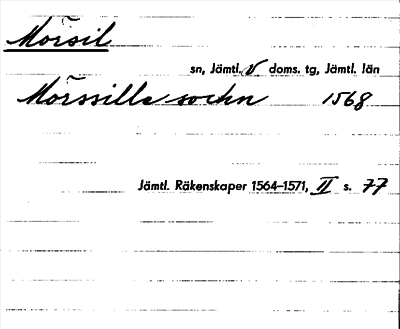 Mörsil
sn, Jämtl. v doms. tg, Jämtl. län
Mörssille sochn 1568
Jämtl. Räkenskaper 1564-1571, II s. 77